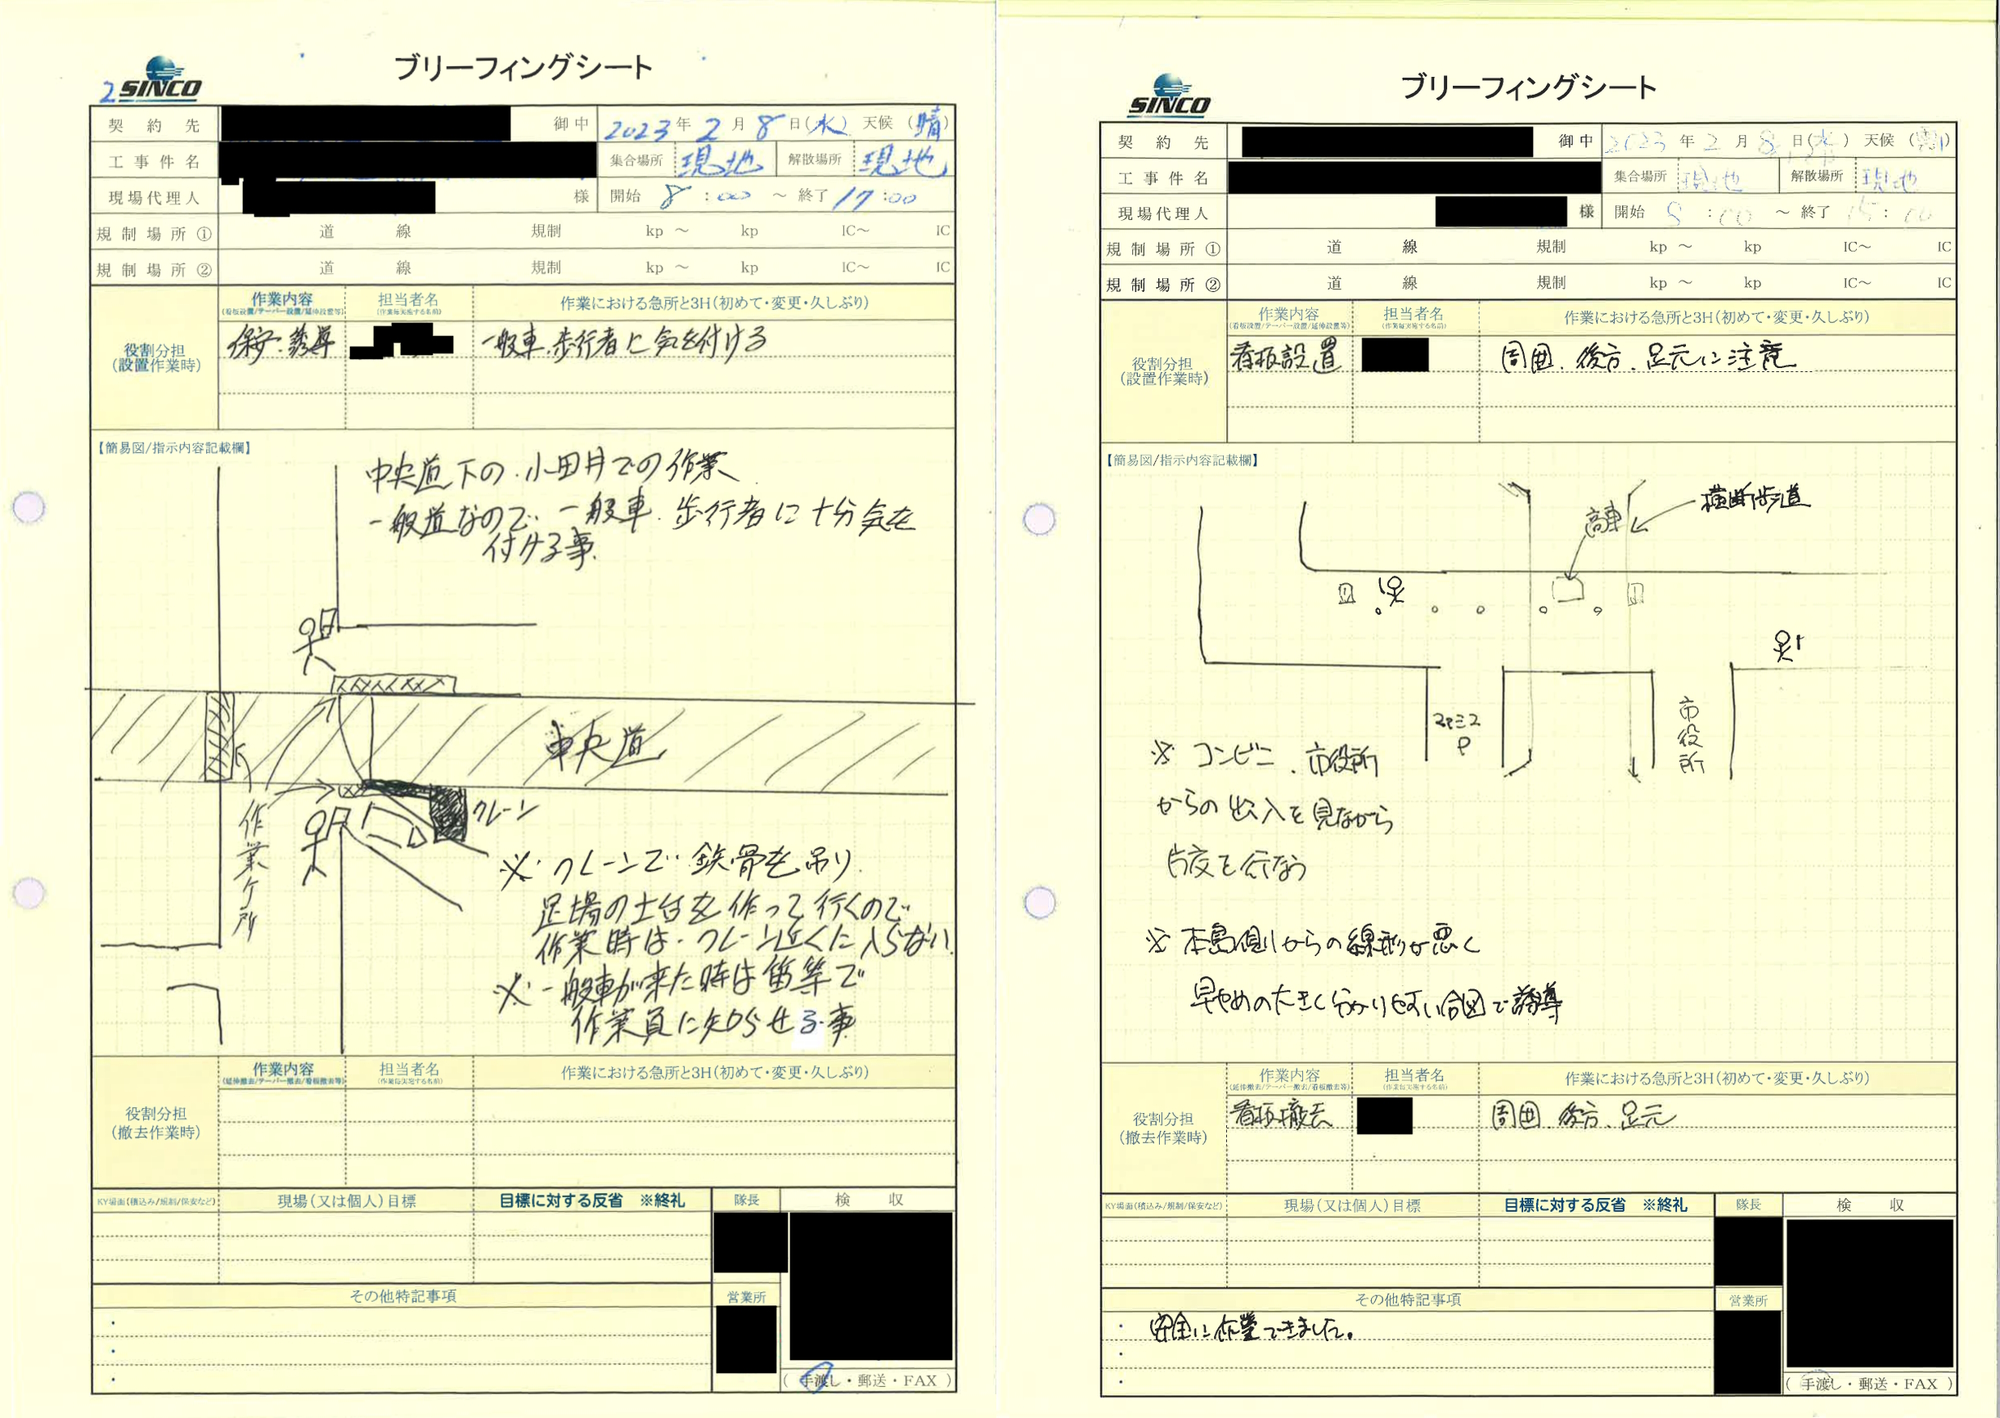 ブリーフィングシート
2 SINCO
契約先 御中 2023年2月8日(水) 天候(晴)
工事件名 集合場所 現地 解散場所 現地
現場代理人 様 開始 8:00 ～ 終了 17:00
規制場所① 道 線 規制 kp ～ kp IC～ IC
規制場所② 道 線 規制 kp ～ kp IC～ IC
役割分担
(設置作業時)
作業内容 担当者名 作業における急所と3H(初めて・変更・久しぶり)
(看板設置/テーパー設置/延伸設置等) (作業毎実施する名前)
保安・誘導 一般車、歩行者に気を付ける
【簡易図/指示内容記載欄】
中央道下の、小田井での作業
一般道なので、一般車、歩行者に十分気を
付ける事。
中央道
クレーン
作業ヶ所
※クレーンで鉄骨を吊り、
足場の土台を作って行くので
作業時は、クレーン近くに入らない。
※一般車が来た時は笛等で
作業員に知らせる事
役割分担
(撤去作業時)
作業内容 担当者名 作業における急所と3H(初めて・変更・久しぶり)
(延伸撤去/テーパー撤去/看板撤去等) (作業毎実施する名前)
KY場面(積込み/規制/保安など) 現場(又は個人)目標 目標に対する反省 ※終礼 隊長 検収
その他特記事項 営業所
・
・
・
(手渡し・郵送・FAX)
ブリーフィングシート
SINCO
契約先 御中 2023年2月8日(水) 天候( )
工事件名 集合場所 現地 解散場所 現地
現場代理人 様 開始 8:00 ～ 終了 :
規制場所① 道 線 規制 kp ～ kp IC～ IC
規制場所② 道 線 規制 kp ～ kp IC～ IC
役割分担
(設置作業時)
作業内容 担当者名 作業における急所と3H(初めて・変更・久しぶり)
(看板設置/テーパー設置/延伸設置等) (作業毎実施する名前)
看板設置 周囲、後方、足元に注意
【簡易図/指示内容記載欄】
横断歩道
高車
P
市役所
※コンビニ、市役所
からの出入を見ながら
片交を行なう
※本島側からの線形が悪く
早やめの大きく分かりやすい合図で誘導
役割分担
(撤去作業時)
作業内容 担当者名 作業における急所と3H(初めて・変更・久しぶり)
(延伸撤去/テーパー撤去/看板撤去等) (作業毎実施する名前)
看板撤去 周囲、後方、足元
KY場面(積込み/規制/保安など) 現場(又は個人)目標 目標に対する反省 ※終礼 隊長 検収
その他特記事項 営業所
・安全に作業できました。
・
・
(手渡し・郵送・FAX)